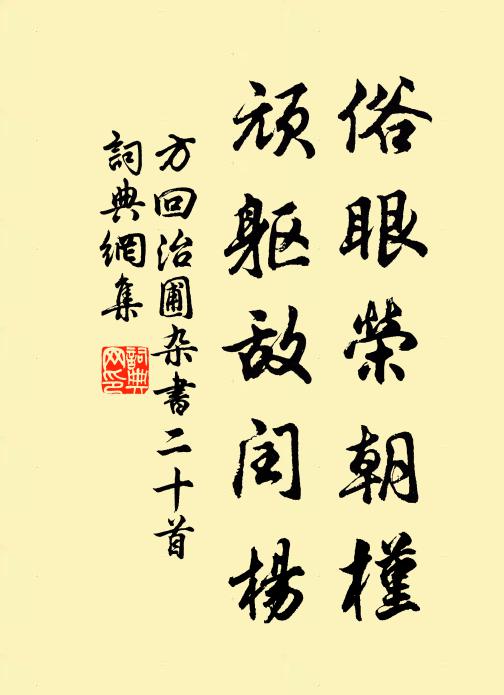 俗眼榮朝槿
頑軀敌闰楊
方回治圃杂書二十首
詞典網集
詞典網印